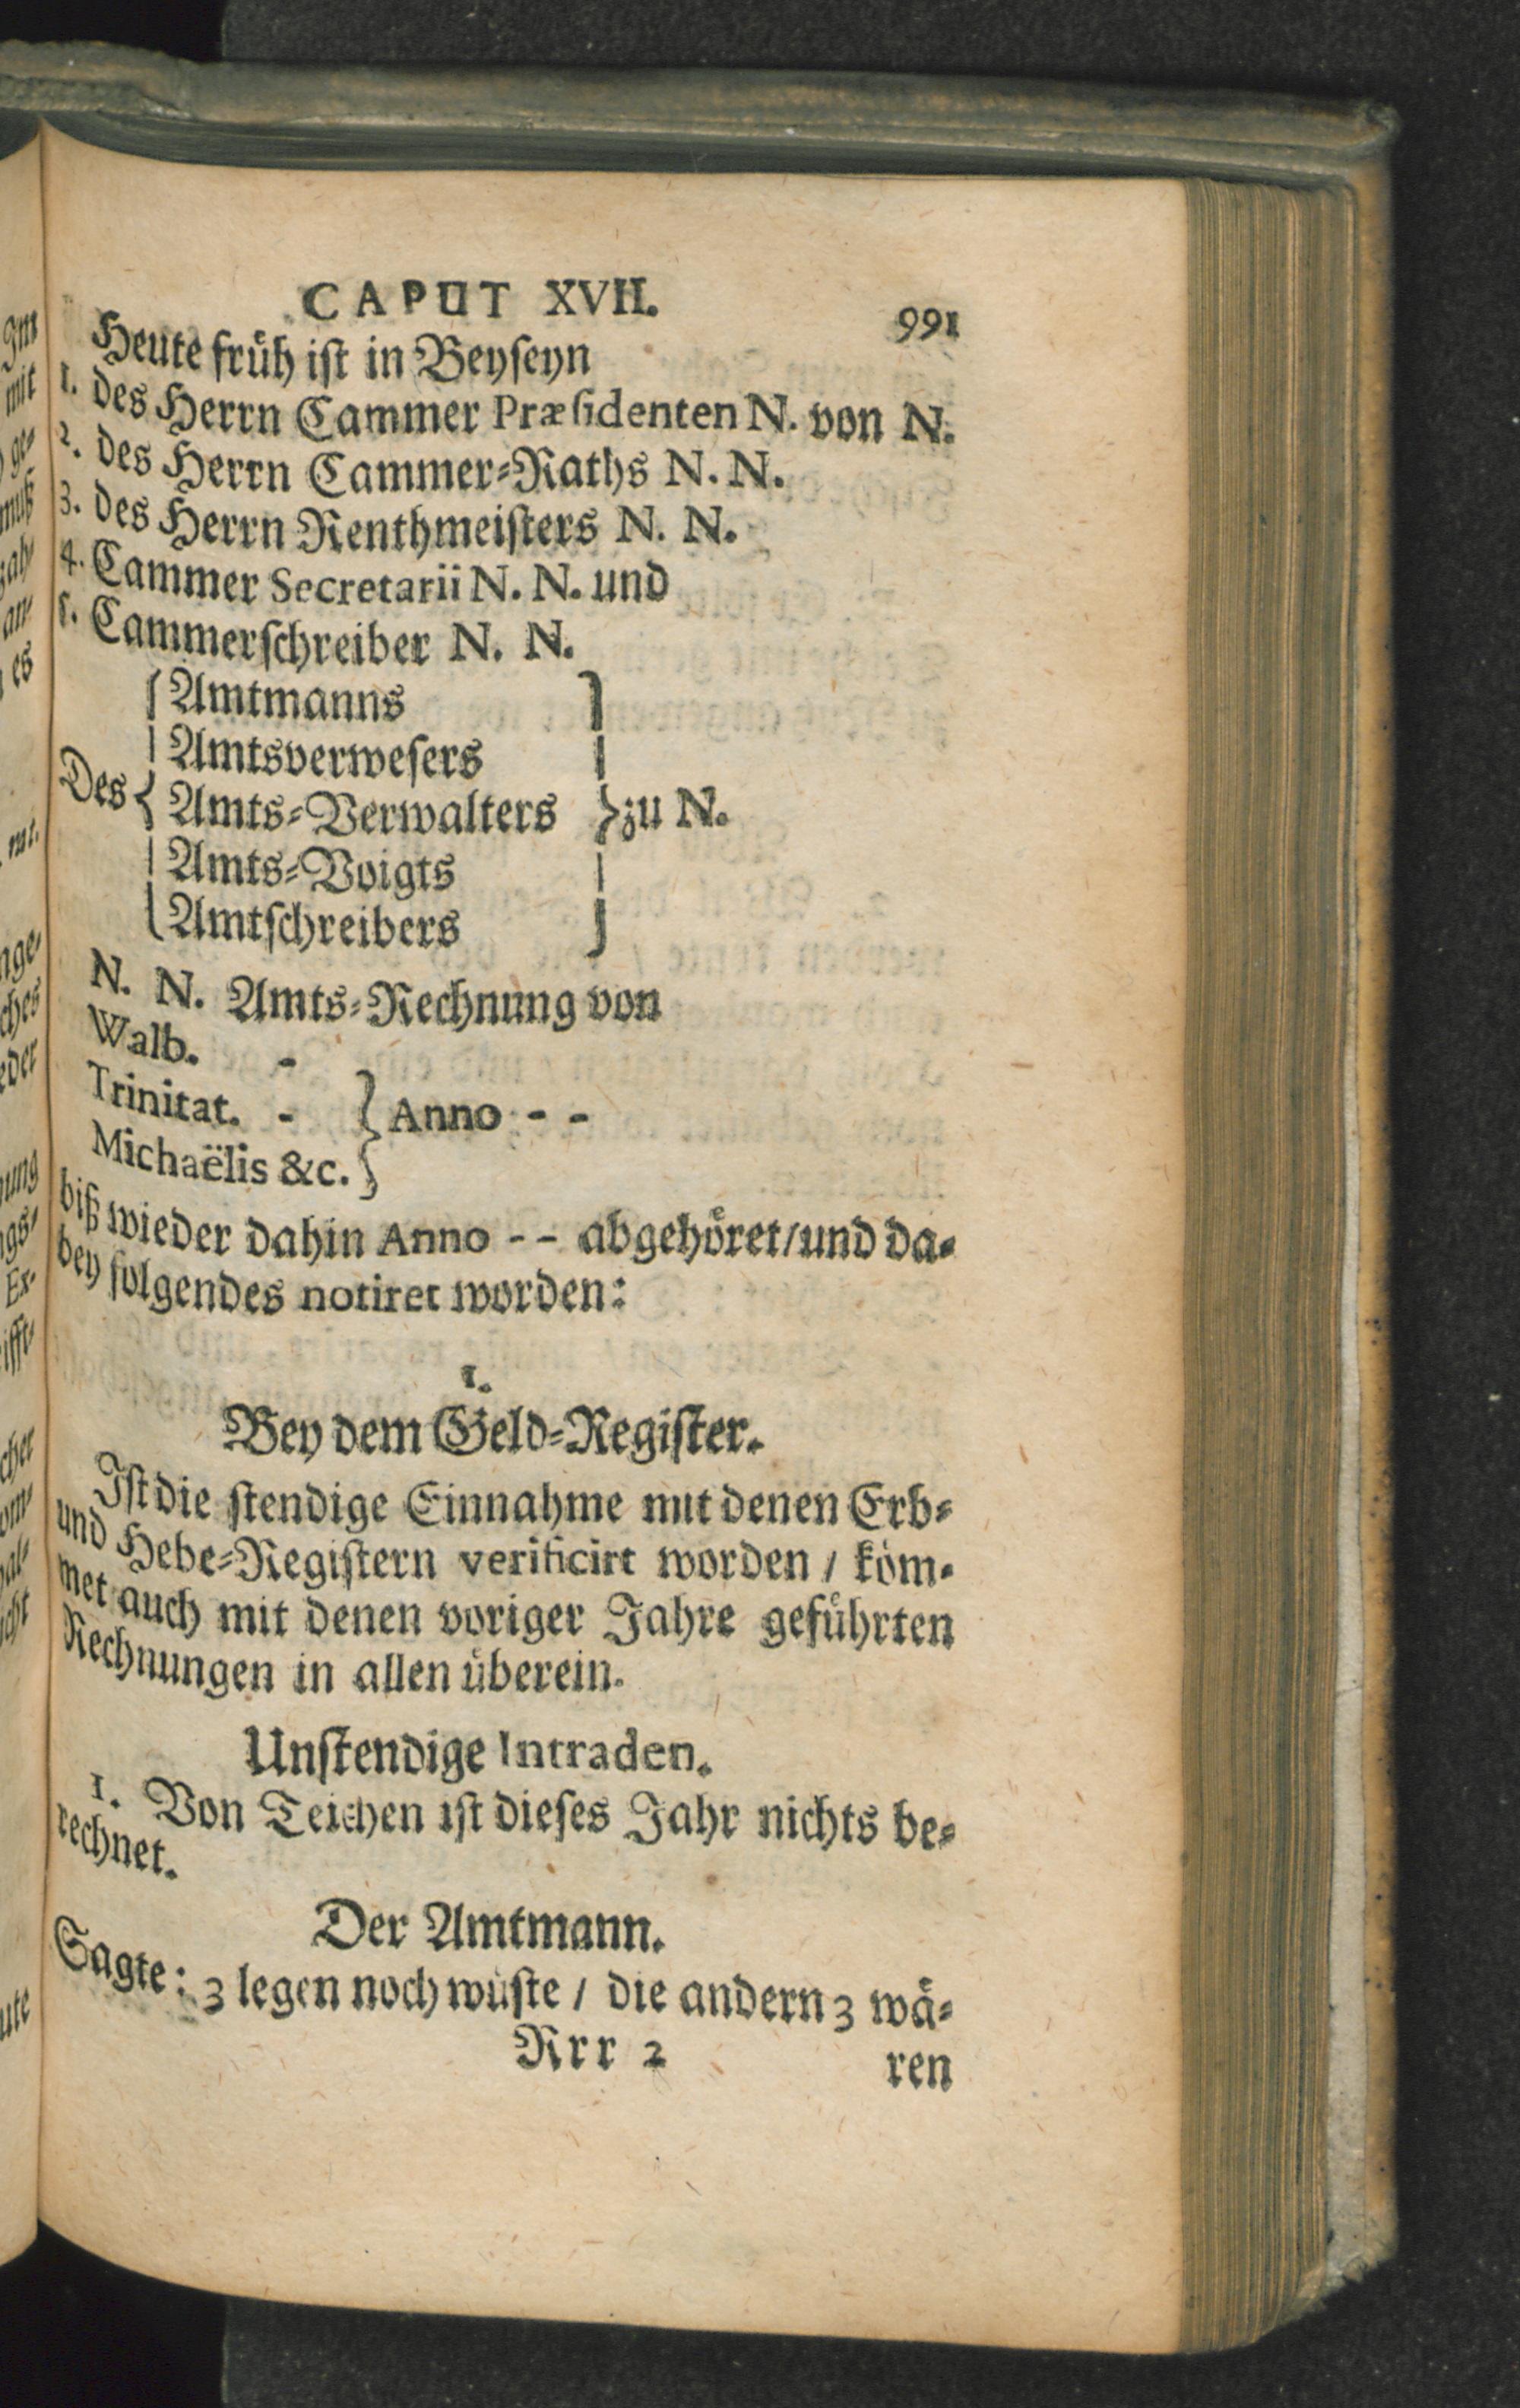 CAPUT XVII. 991
Heute früh ist in Beyseyn
1. des Herrn Cammer Præsidenten N. von N.
2. des Herrn Cammer-Raths N. N.
3. des Herrn Renthmeisters N. N.
4. Cammer Secretarii N. N. und
5. Cammerschreiber N. N.
Amtmanns
Amtsverwesers
Des { Amts-Verwalters } zu N.
Amts-Voigts
Amtschreibers
N. N. Amts-Rechnung von
Walb. -
Trinitat. - } Anno - -
Michaëlis &c.
biß wieder dahin Anno - - abgehöret / und da-
bey folgendes notiret worden:
1.
Bey dem Geld-Register.
Ist die stendige Einnahme mit denen Erb-
und Hebe-Registern verificirt worden / köm-
met auch mit denen voriger Jahre geführten
Rechnungen in allen überein.
Unstendige Intraden.
1. Von Teichen ist dieses Jahr nichts be-
rechnet.
Der Amtmann.
Sagte: 3 legen noch wüste / die andern 3 wä-
Rrr 2 ren